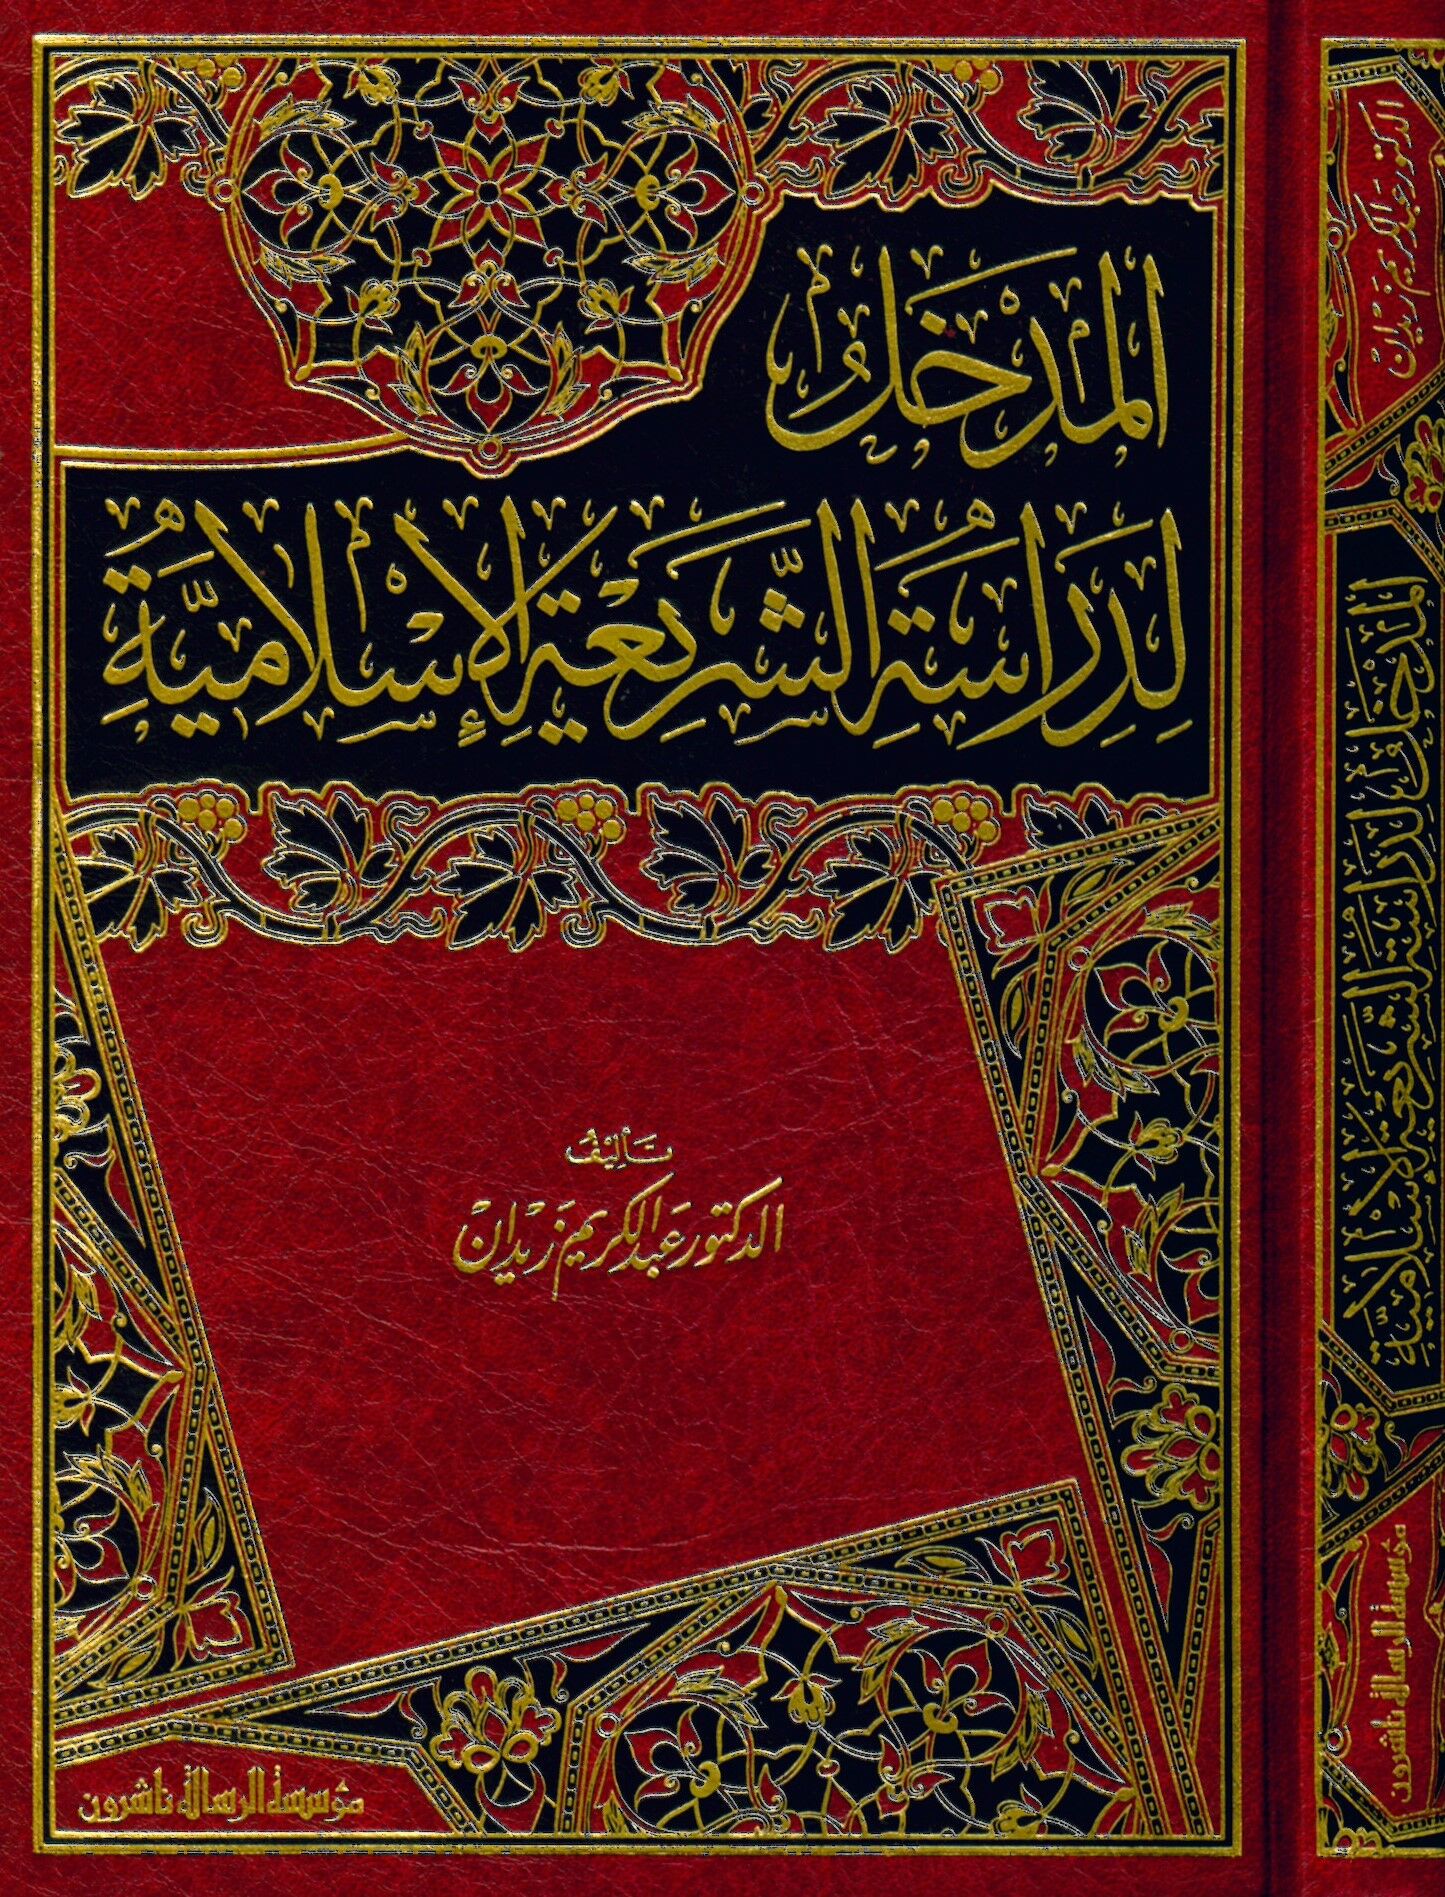 المدخل
لِدِرَاسَةِ الشَّرِيعَةِ الإِسْلَامِيَّةِ
تأليف
الدكتور عبد الكريم زيدان
مؤسسة الرسالة ناشرون
الدكتور عبد الكريم زيدان
المدخل لدراسة الشريعة الإسلامية
مؤسسة الرسالة ناشرون